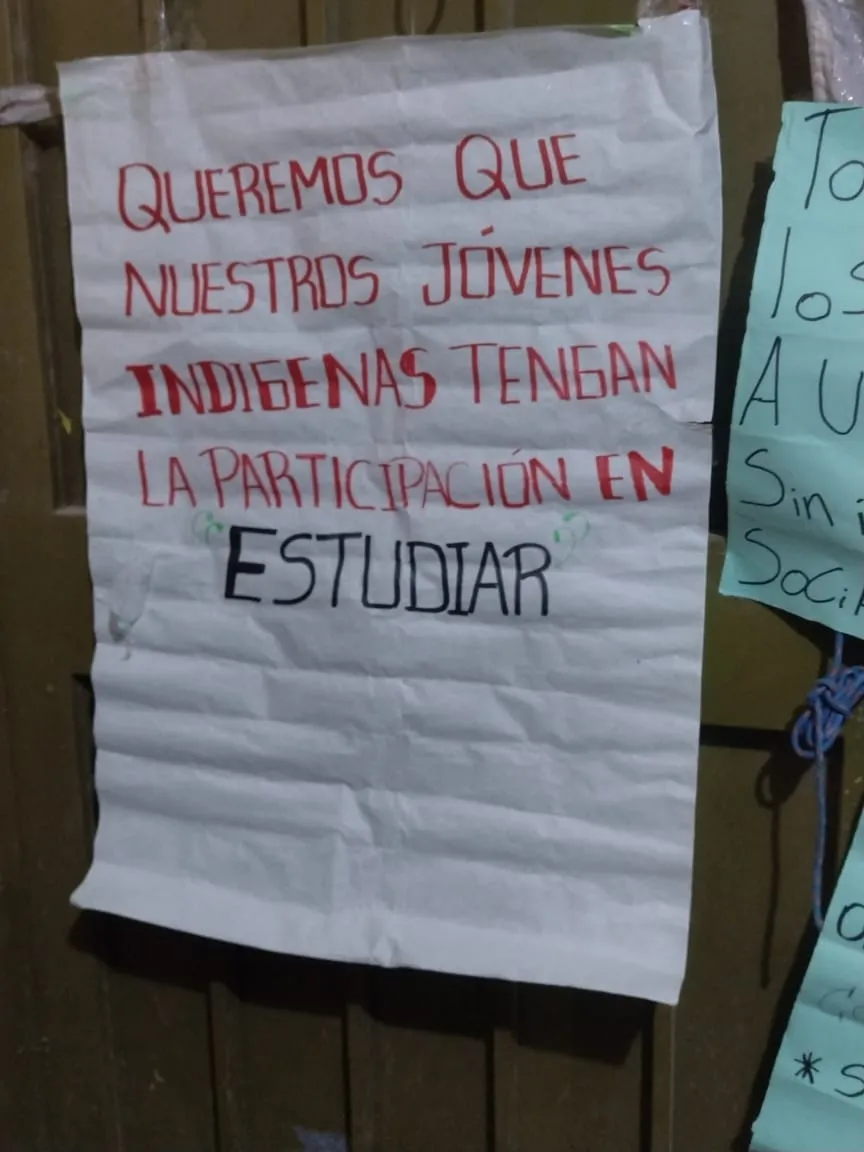 QUEREMOS QUE
NUESTROS JÓVENES
INDIGENAS TENGAN
LA PARTICIPACIÓN EN
"ESTUDIAR"
A U
Sin